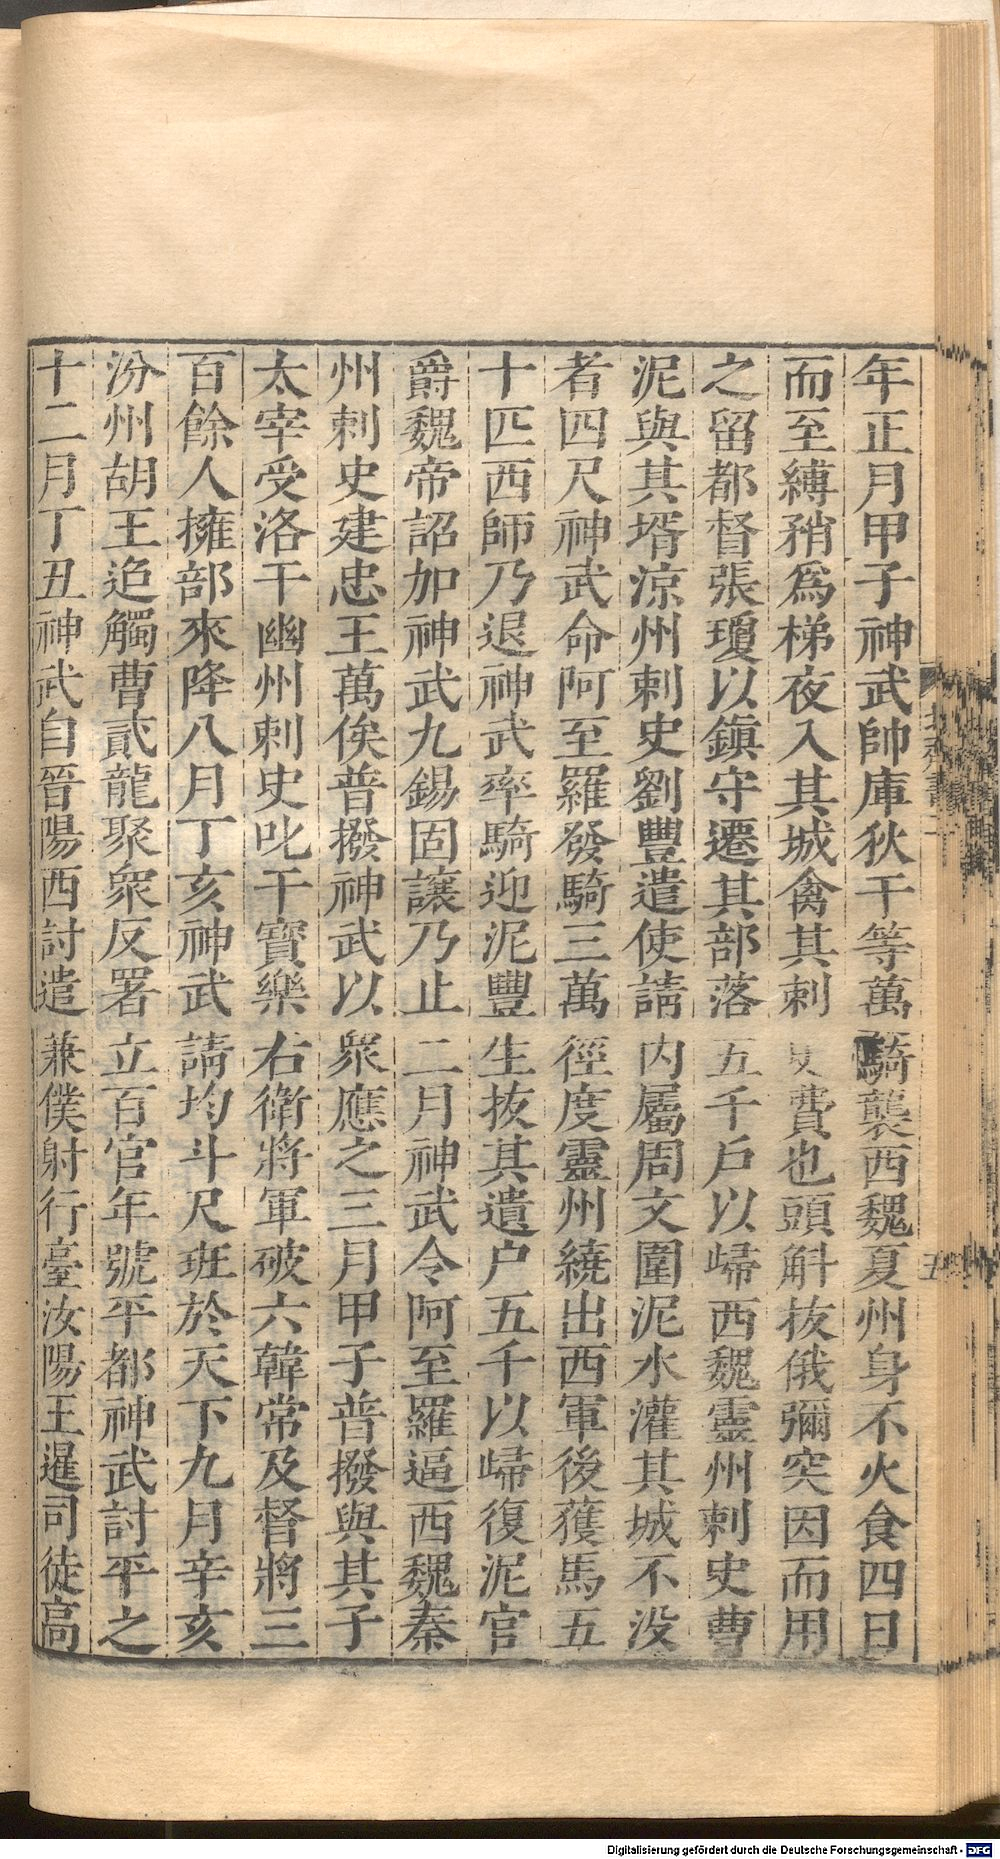 年正月甲子神武帥庫狄干等萬騎襲西魏夏州身不火食四日
而至縛矟爲梯夜入其城禽其刺史費也頭斛抜俄彌突因而用
之留都督張瓊以鎮守遷其部落五千戶以歸西魏靈州刺史曹
泥與其壻涼州刺史劉豐遣使請内屬周文圍泥水灌其城不没
者四尺神武命阿至羅發騎三萬徑度靈州繞出西軍後獲馬五
十匹西師乃退神武率騎迎泥豐生抜其遺户五千以歸復泥官
爵魏帝詔加神武九錫固讓乃止二月神武令阿至羅逼西魏秦
州刺史建忠王萬俟普撥神武以衆應之三月甲子普撥與其子
太宰受洛干豳州刺史叱干寶樂右衛將軍破六韓常及督將三
百餘人擁部來降八月丁亥神武請均斗尺班於天下九月辛亥
汾州胡王迢觸曹貳龍聚衆反署立百官年號平都神武討平之
十二月丁丑神武自晉陽西討遣兼僕射行臺汝陽王暹司徒高
北齊書二
五
Digitalisierung gefördert durch die Deutsche Forschungsgemeinschaft - DFG